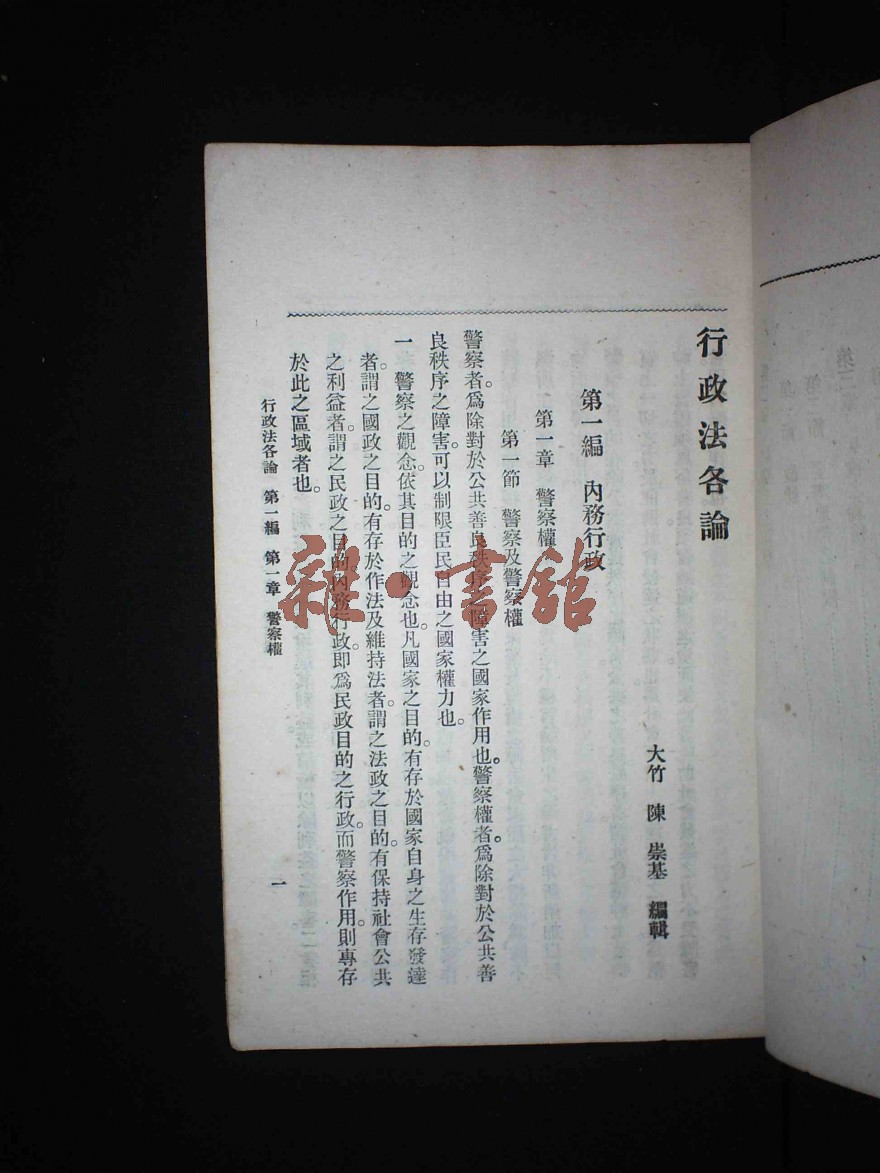 行政法各論
大竹 陳崇基 編輯
第一編 內務行政
第一章 警察權
第一節 警察及警察權
警察者。爲除對於公共善良秩序之障害之國家作用也。警察權者。爲除對於公共善
良秩序之障害。可以制限臣民自由之國家權力也。
一 警察之觀念。依其目的之觀念也。凡國家之目的。有存於國家自身之生存發達
者。謂之國政之目的。有存於作法及維持法者。謂之法政之目的。有保持社會公共
之利益者。謂之民政之目的。內務行政。即爲民政目的之行政。而警察作用。則專存
於此之區域者也。
行政法各論 第一編 第一章 警察權
一
雜·書館